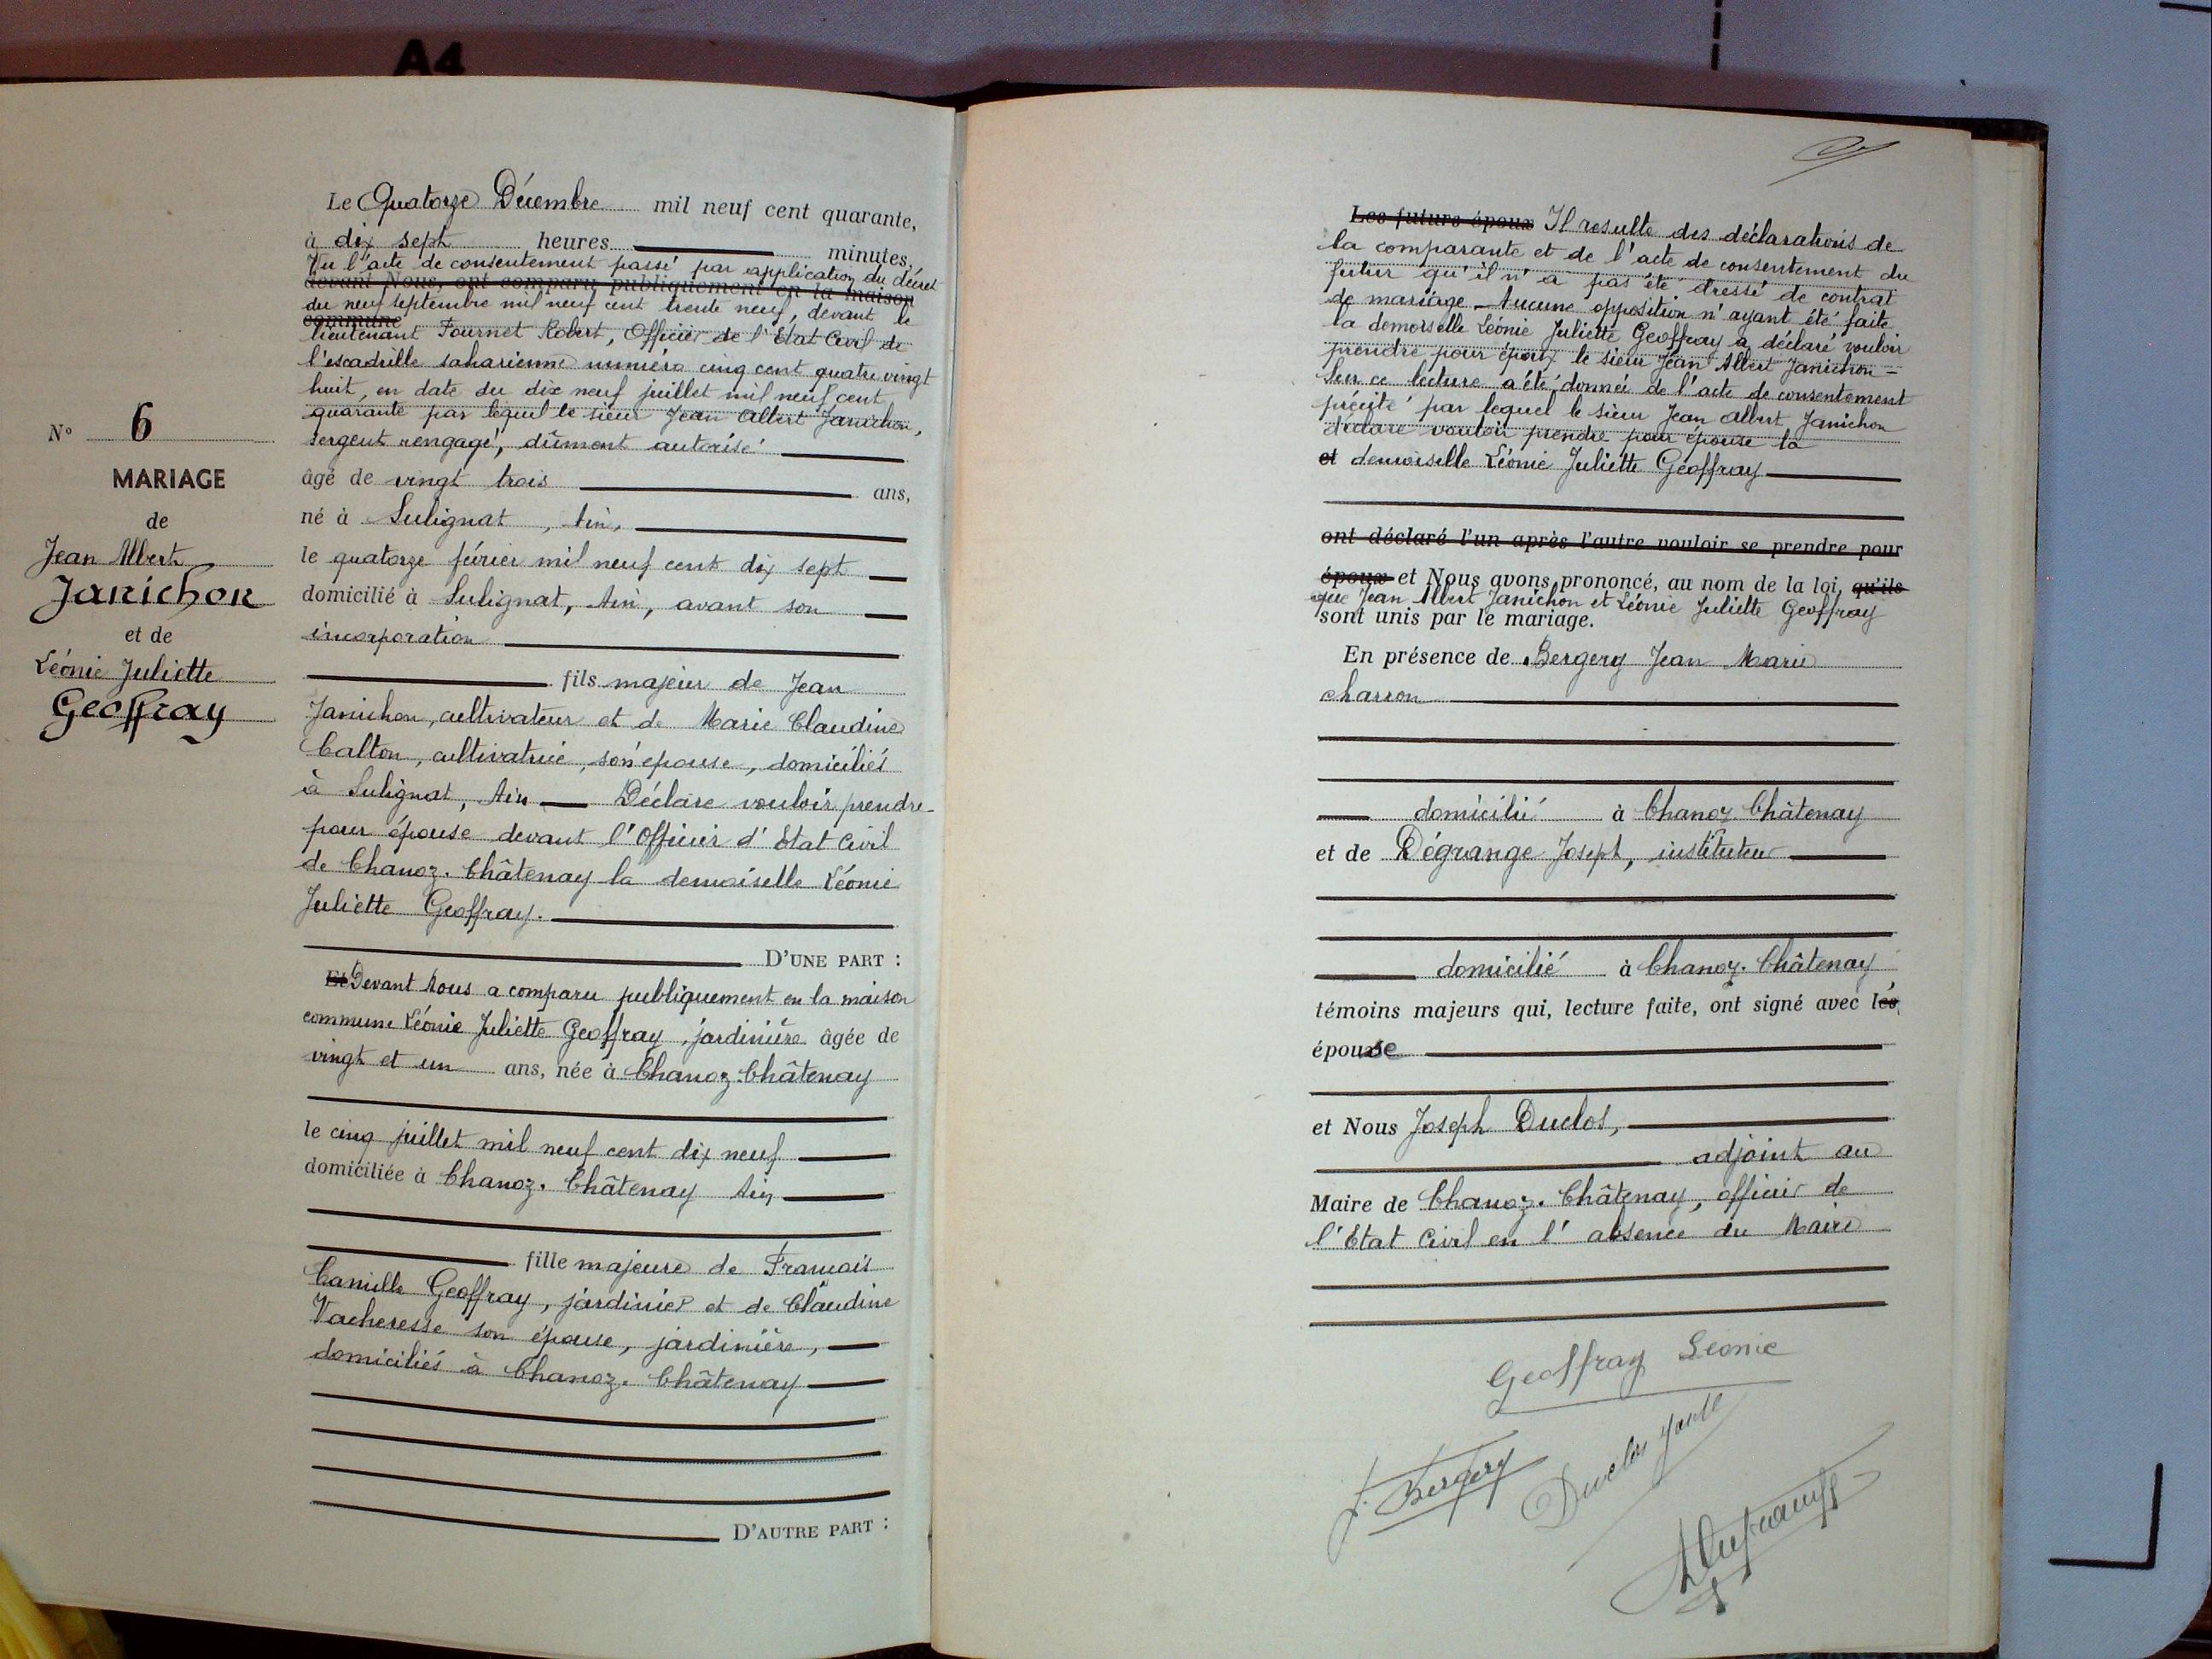 A4
N° 6
MARIAGE
de
Jean Albert
Janichon
et de
Léonie Juliette
Geoffray
Le Quatorze Décembre mil neuf cent quarante,
à dix sept heures minutes,
Vu l'acte de consentement passé par application du décret
devant Nous, ont comparu publiquement en la maison
du neuf septembre mil neuf cent trente neuf, devant le
commune
lieutenant Fournet Robert, Officier de l'Etat Civil de
l'escadrille saharienne numéro cinq cent quatre vingt
huit, en date du dix neuf juillet mil neuf cent
quarante par lequel le sieur Jean Albert Janichon,
sergent rengagé, dûment autorisé
âgé de vingt trois ans,
né à Sulignat, Ain,
le quatorze février mil neuf cent dix sept
domicilié à Sulignat, Ain, avant son
incorporation
fils majeur de Jean
Janichon, cultivateur et de Marie Claudine
Calton, cultivatrice, son épouse, domiciliés
à Sulignat, Ain Déclare vouloir prendre
pour épouse devant l'Officier d'Etat Civil
de Chanoz-Châtenay la demoiselle Léonie
Juliette Geoffray.
D'UNE PART :
Et Devant Nous a comparu publiquement en la maison
commune Léonie Juliette Geoffray, jardinière âgée de
vingt et un ans, née à Chanoz-Châtenay
le cinq juillet mil neuf cent dix neuf
domiciliée à Chanoz-Châtenay Ain
fille majeure de François
Camille Geoffray, jardinier et de Claudine
Vacheresse son épouse, jardinière,
domiciliés à Chanoz-Châtenay
D'AUTRE PART :
Les futurs époux Il resulte des déclarations de
la comparante et de l'acte de consentement du
futur qu'il n'a pas été dressé de contrat
de mariage - Aucune opposition n'ayant été faite
la demoiselle Léonie Juliette Geoffray a déclaré vouloir
prendre pour époux le sieur Jean Albert Janichon -
Sur ce lecture a été donnée de l'acte de consentement
précité par lequel le sieur Jean Albert Janichon
déclare vouloir prendre pour épouse la
et demoiselle Léonie Juliette Geoffray
ont déclaré l'un après l'autre vouloir se prendre pour
époux et Nous avons prononcé, au nom de la loi, qu'ils
que Jean Albert Janichon et Léonie Juliette Geoffray
sont unis par le mariage.
En présence de Bergery Jean Marie
charron
domicilié à Chanoz-Châtenay
et de Dégrange Joseph, instituteur
domicilié à Chanoz-Châtenay
témoins majeurs qui, lecture faite, ont signé avec les
épouse
et Nous Joseph Duclos,
adjoint au
Maire de Chanoz-Châtenay, officier de
l'Etat Civil en l'absence du Maire
Geoffray Léonie
J. Bergery
Duclos